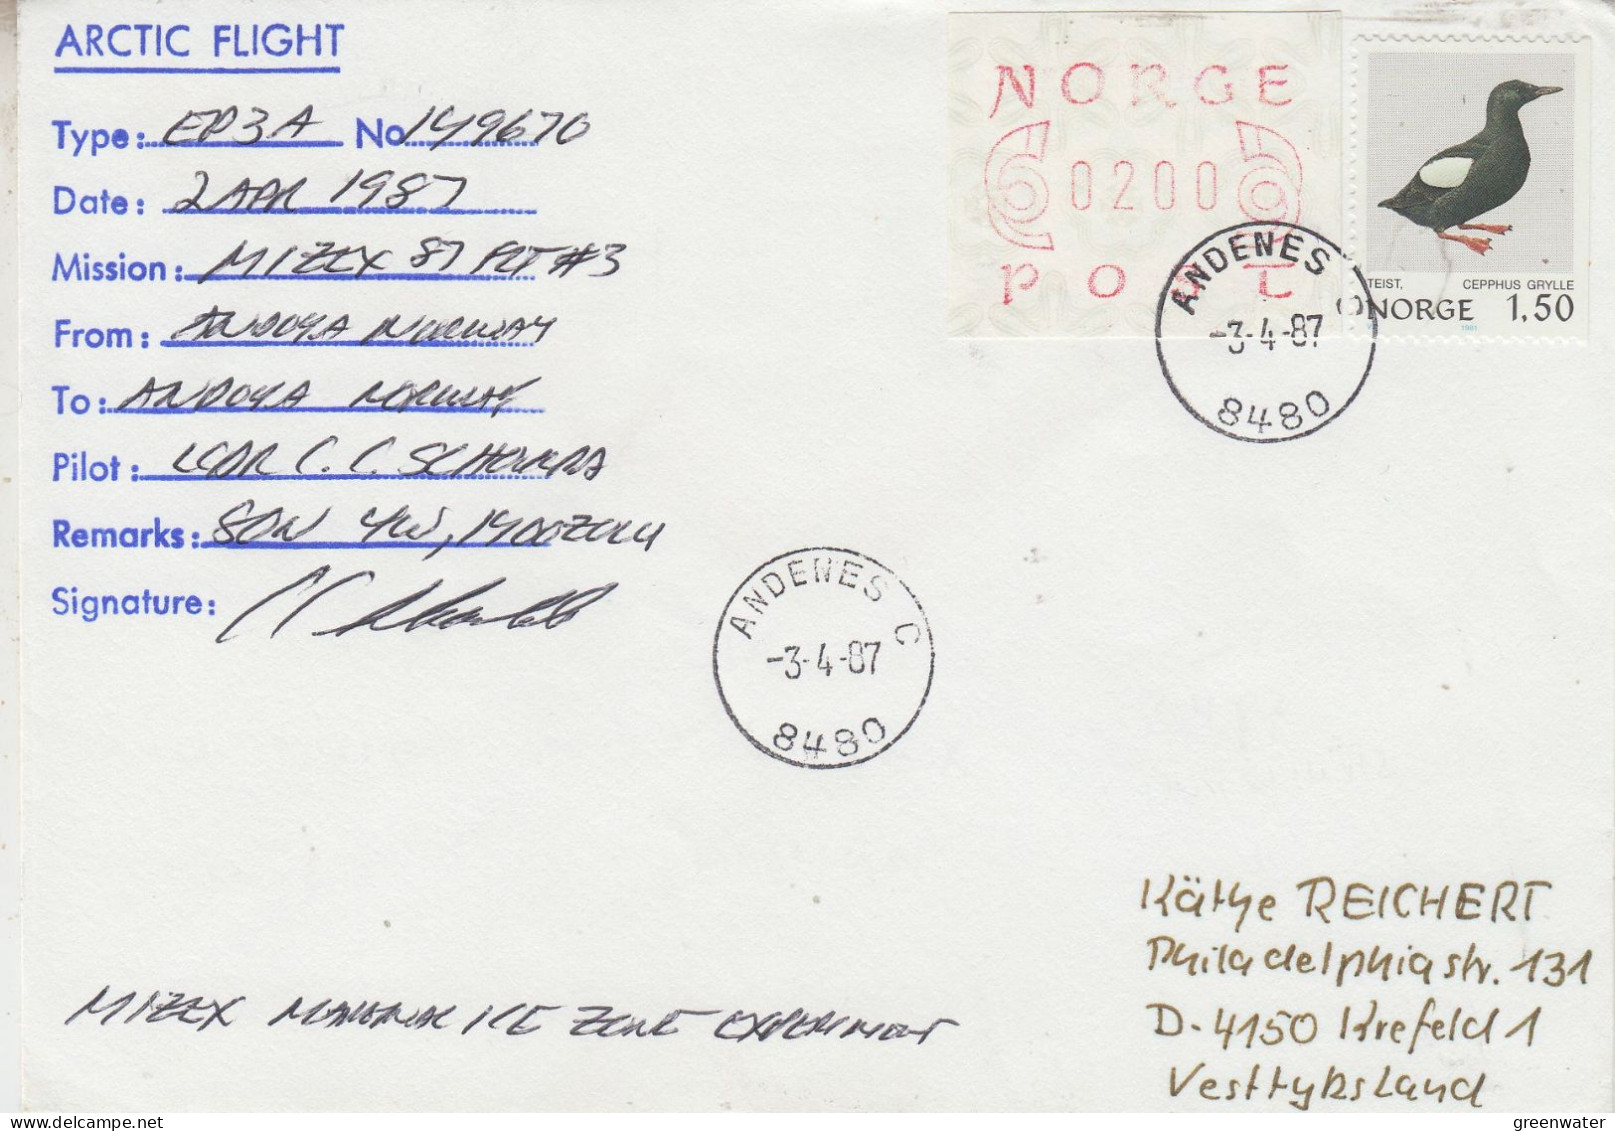 ARCTIC FLIGHT
Type: EP3A No 149670
Date: 2 APR 1987
Mission: MIZEX 87 FLT #3
From: ANDOYA NORWAY
To: ANDOYA NORWAY
Pilot: LCDR C. C.
Remarks: 80N 4W, 1400ZULU
Signature:
NORGE
0200
POST
TEIST, CEPPHUS GRYLLE
NORGE 1,50
1981
ANDENES
-3-4-87
8480
ANDENES C
-3-4-87
8480
MIZEX MARGINAL ICE ZONE EXPERIMENT
Käthe REICHERT
Philadelphiastr. 131
D-4150 Krefeld 1
Vesttyksland
greenwater